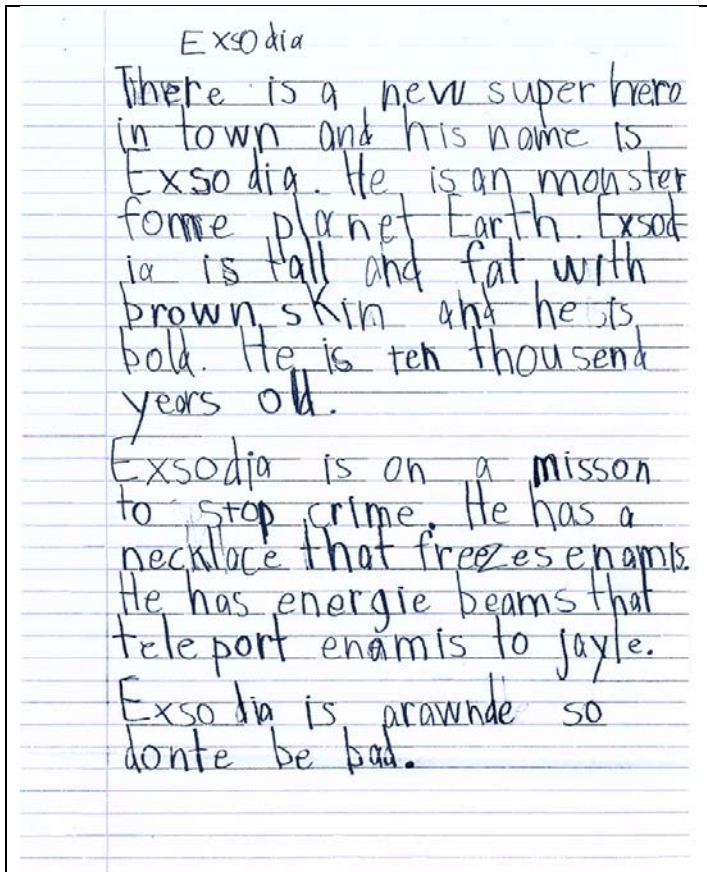 Exsodia
There is a new super hero
in town and his name is
Exsodia. He is an monster
fome planet Earth. Exsod
ia is tall and fat with
brown skin and he is
bold. He is ten thousend
years old.
Exsodia is on a misson
to stop crime. He has a
necklace that freezes enamis.
He has energie beams that
teleport enamis to jayle.
Exsodia is arawnde so
donte be bad.